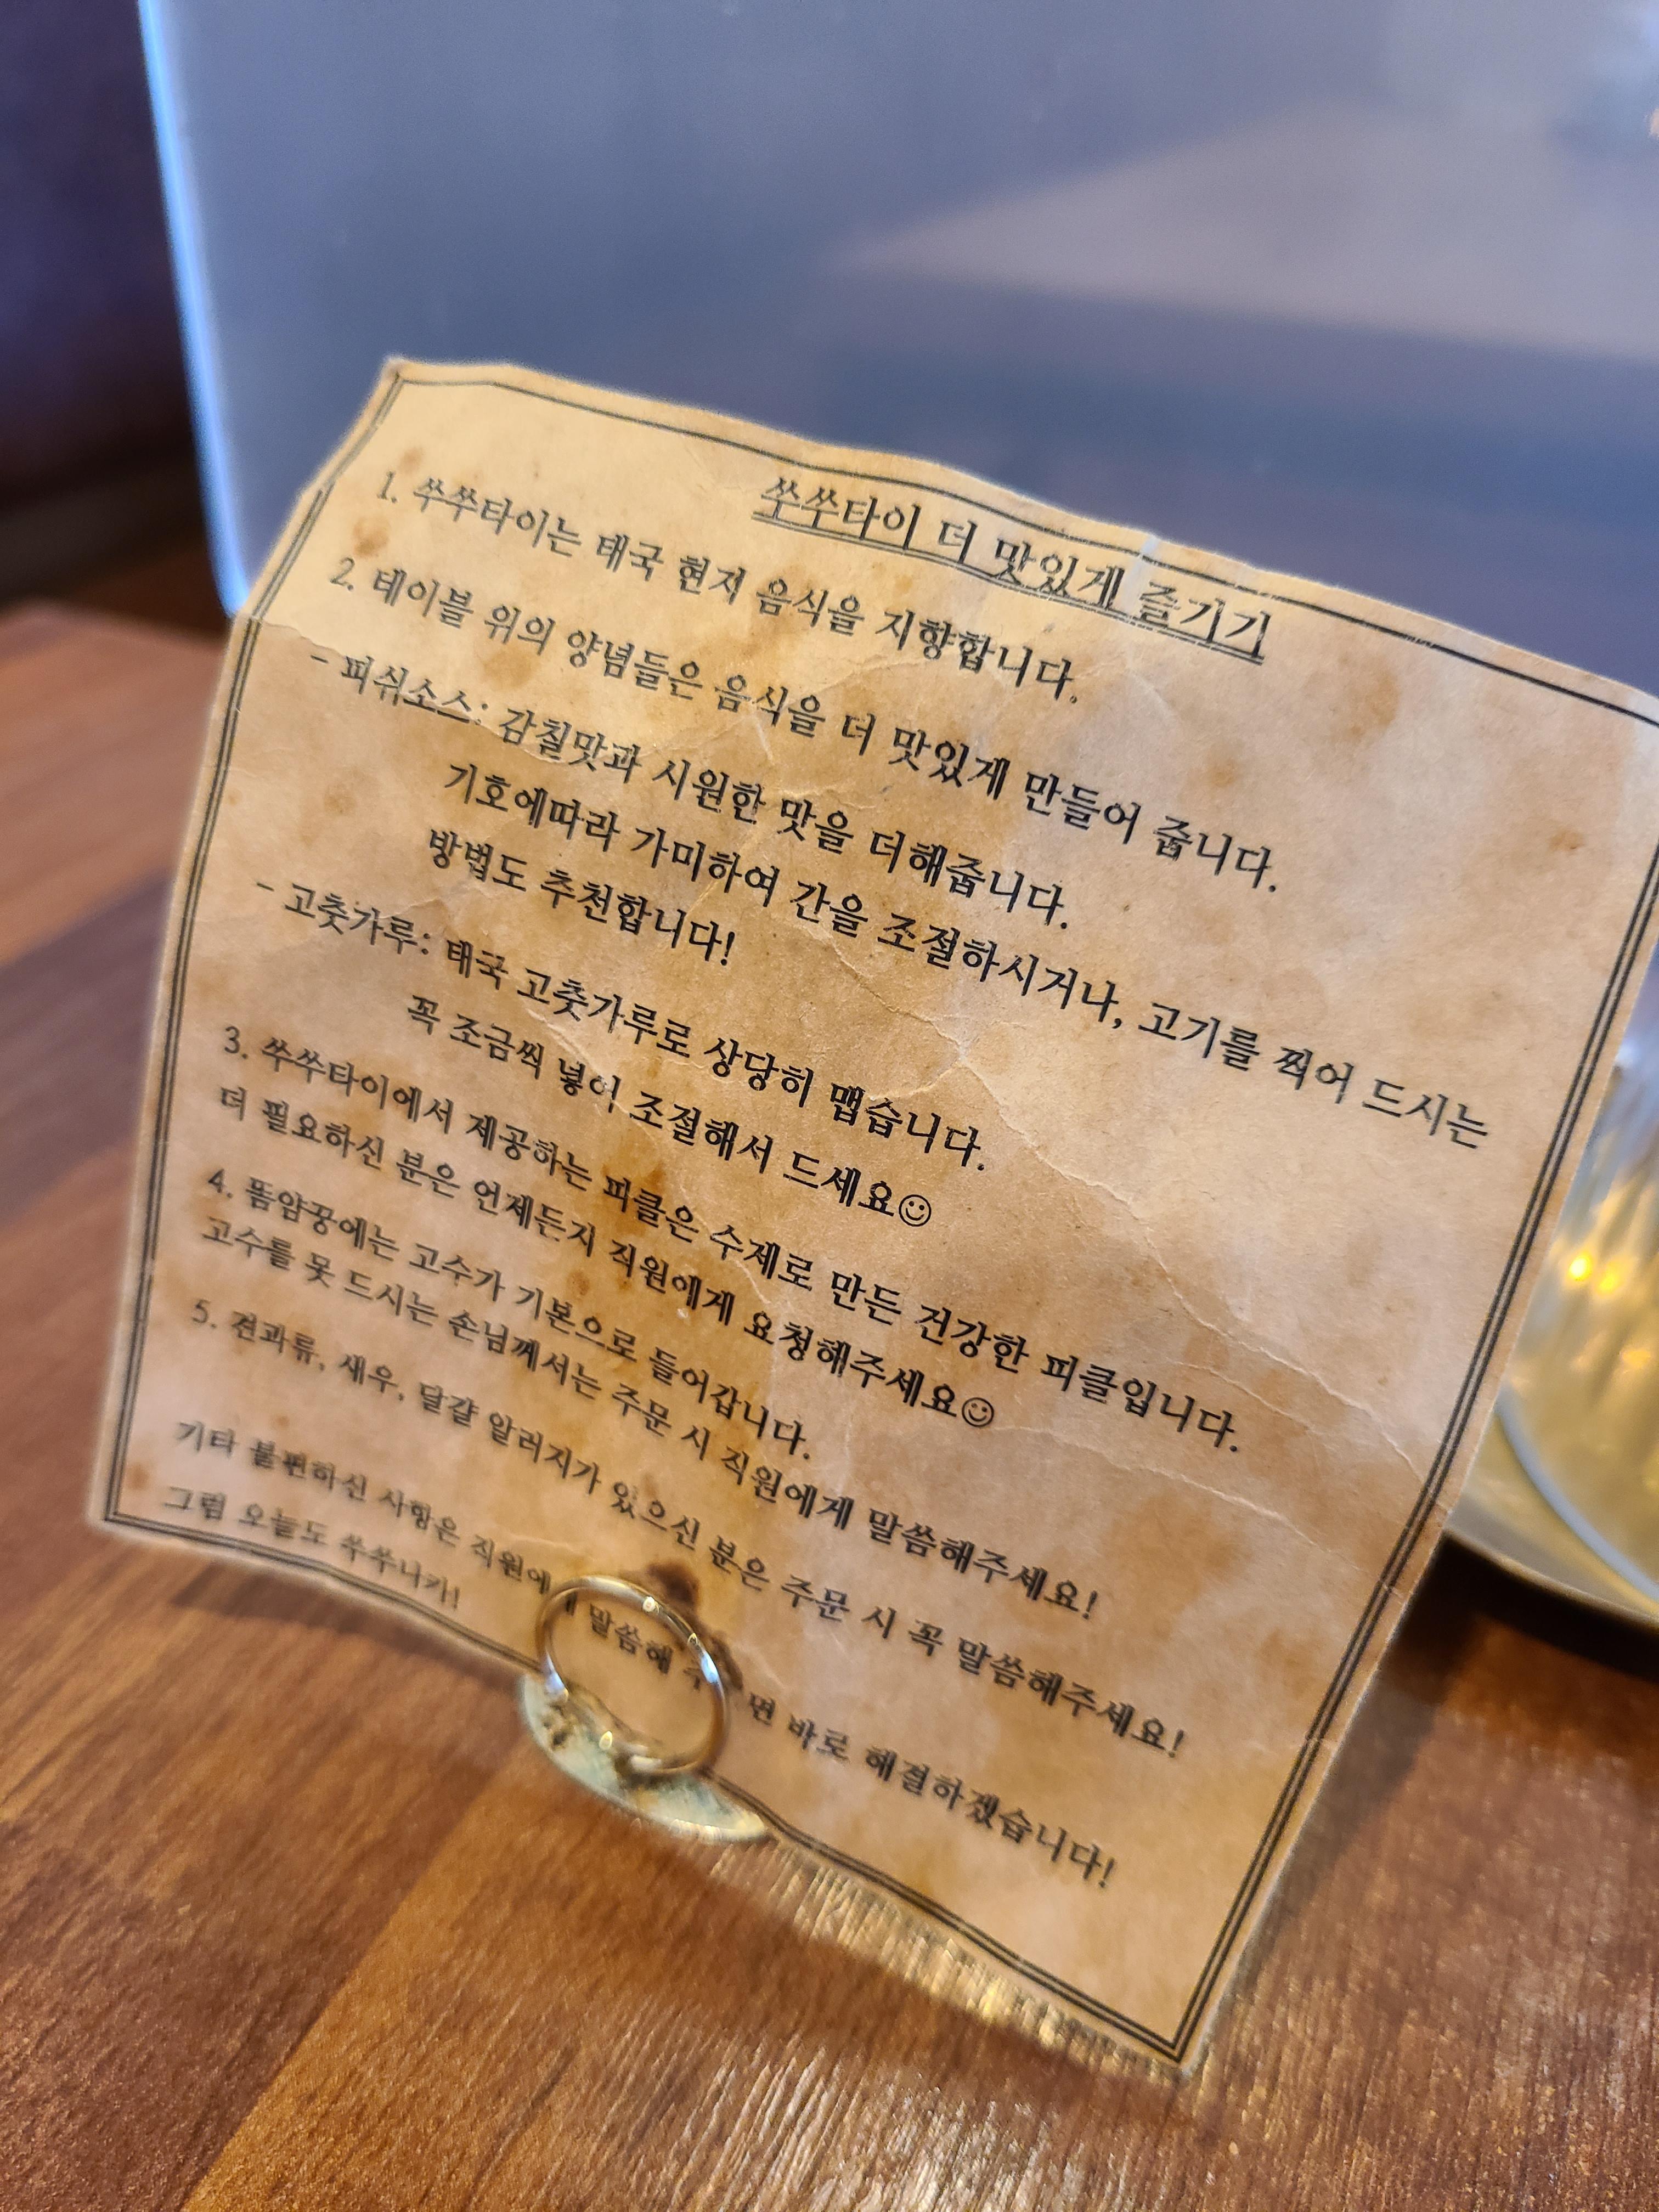 쑤쑤타이 더 맛있게 즐기기
1. 쑤쑤타이는 태국 현지 음식을 지향합니다.
2. 테이블 위의 양념들은 음식을 더 맛있게 만들어 줍니다.
- 피쉬소스: 감칠맛과 시원한 맛을 더해줍니다.
기호에따라 가미하여 간을 조절하시거나, 고기를 찍어 드시는
방법도 추천합니다!
- 고춧가루: 태국 고춧가루로 상당히 맵습니다.
꼭 조금씩 넣어 조절해서 드세요☺
3. 쑤쑤타이에서 제공하는 피클은 수제로 만든 건강한 피클입니다.
더 필요하신 분은 언제든지 직원에게 요청해주세요☺
4. 똠얌꿍에는 고수가 기본으로 들어갑니다.
고수를 못 드시는 손님께서는 주문 시 직원에게 말씀해주세요!
5. 견과류, 새우, 달걀 알러지가 있으신 분은 주문 시 꼭 말씀해주세요!
기타 불편하신 사항은 직원에게 말씀해 바로 해결하겠습니다!
그럼 오늘도 쑤쑤나카!